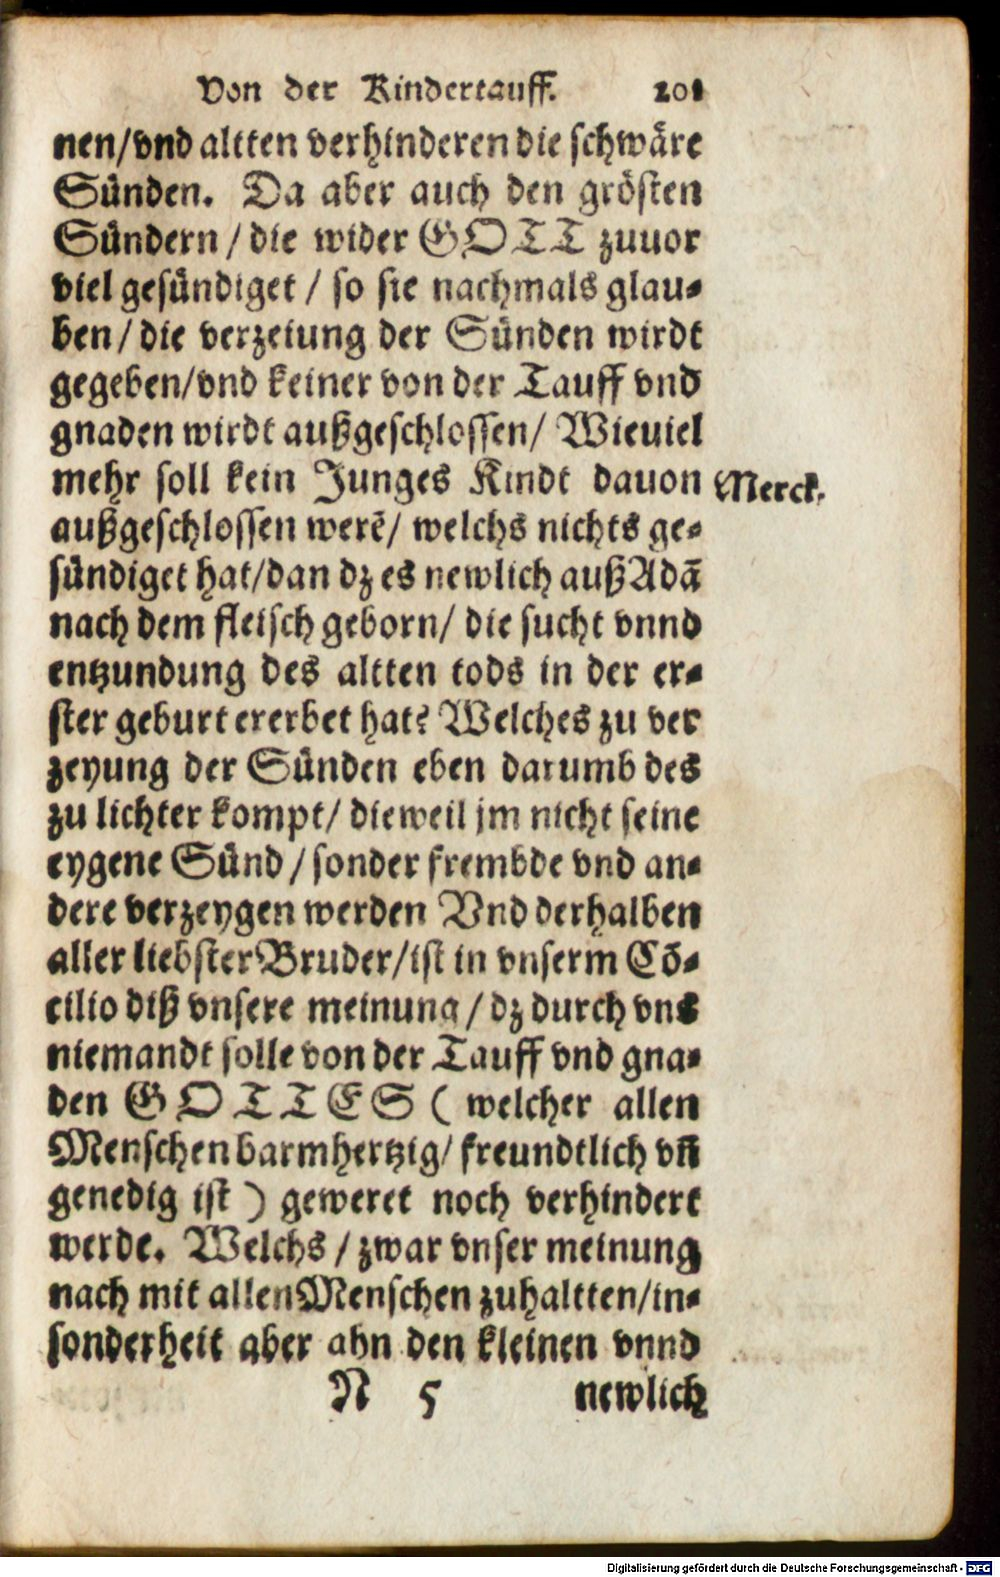 Von der Kindertauff. 201
nen/vnd altten verhinderen die schwäre
Sünden. Da aber auch den grösten
Sündern / die wider GOTT zuuor
viel gesündiget / so sie nachmals glau-
ben / die verzeiung der Sünden wirdt
gegeben/vnd keiner von der Tauff vnd
gnaden wirdt außgeschlossen/ Wieuiel
mehr soll kein Junges Kindt dauon
Merck.
außgeschlossen werē/ welchs nichts ge-
sündiget hat/dan dz es newlich auß Adā
nach dem fleisch geborn/ die sucht vnnd
entzundung des altten tods in der er-
ster geburt ererbet hat? Welches zu ver
zeyung der Sünden eben darumb des
zu lichter kompt/ dieweil jm nicht seine
eygene Sünd / sonder frembde vnd an-
dere verzeygen werden Vnd derhalben
aller liebster Bruder/ist in vnserm Cō-
cilio diß vnsere meinung / dz durch vns
niemandt solle von der Tauff vnd gna-
den GOTTES ( welcher allen
Menschen barmhertzig/ freundtlich vñ
genedig ist ) geweret noch verhindert
werde. Welchs / zwar vnser meinung
nach mit allen Menschen zuhaltten/in-
sonderheit aber ahn den kleinen vnnd
N 5 newlich
Digitalisierung gefördert durch die Deutsche Forschungsgemeinschaft - DFG